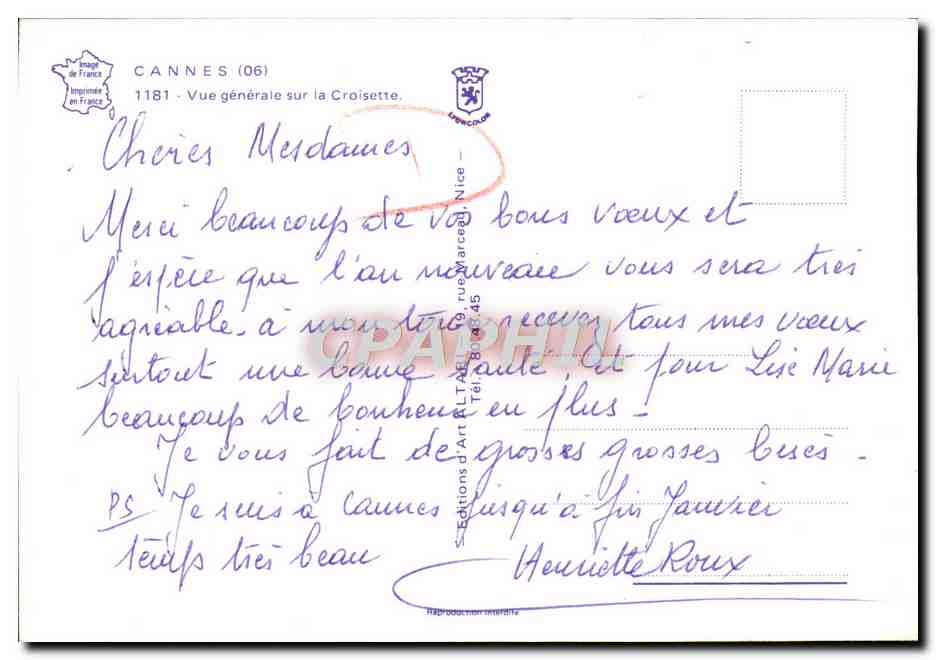 Image
de France
Imprimée
en France
CANNES (06)
1181 - Vue générale sur la Croisette.
LYONCOLOR
Chères Mesdames
Merci beaucoup de vos bons vœux et
j'espère que l'an nouveau vous sera très
agréable. à mon tour recevez tous mes vœux
surtout une bonne santé. Et pour Lise Marie
beaucoup de bonheur en plus -
Je vous fait de grosses grosses bises -
PS Je suis à Cannes jusqu'à fin Janvier
temps très beau
Henriette Roux
S. Editions d'Art ALTARI - 9, rue Marceau, Nice -
Tél. 80.48.45
Reproduction interdite
CPAPHIL